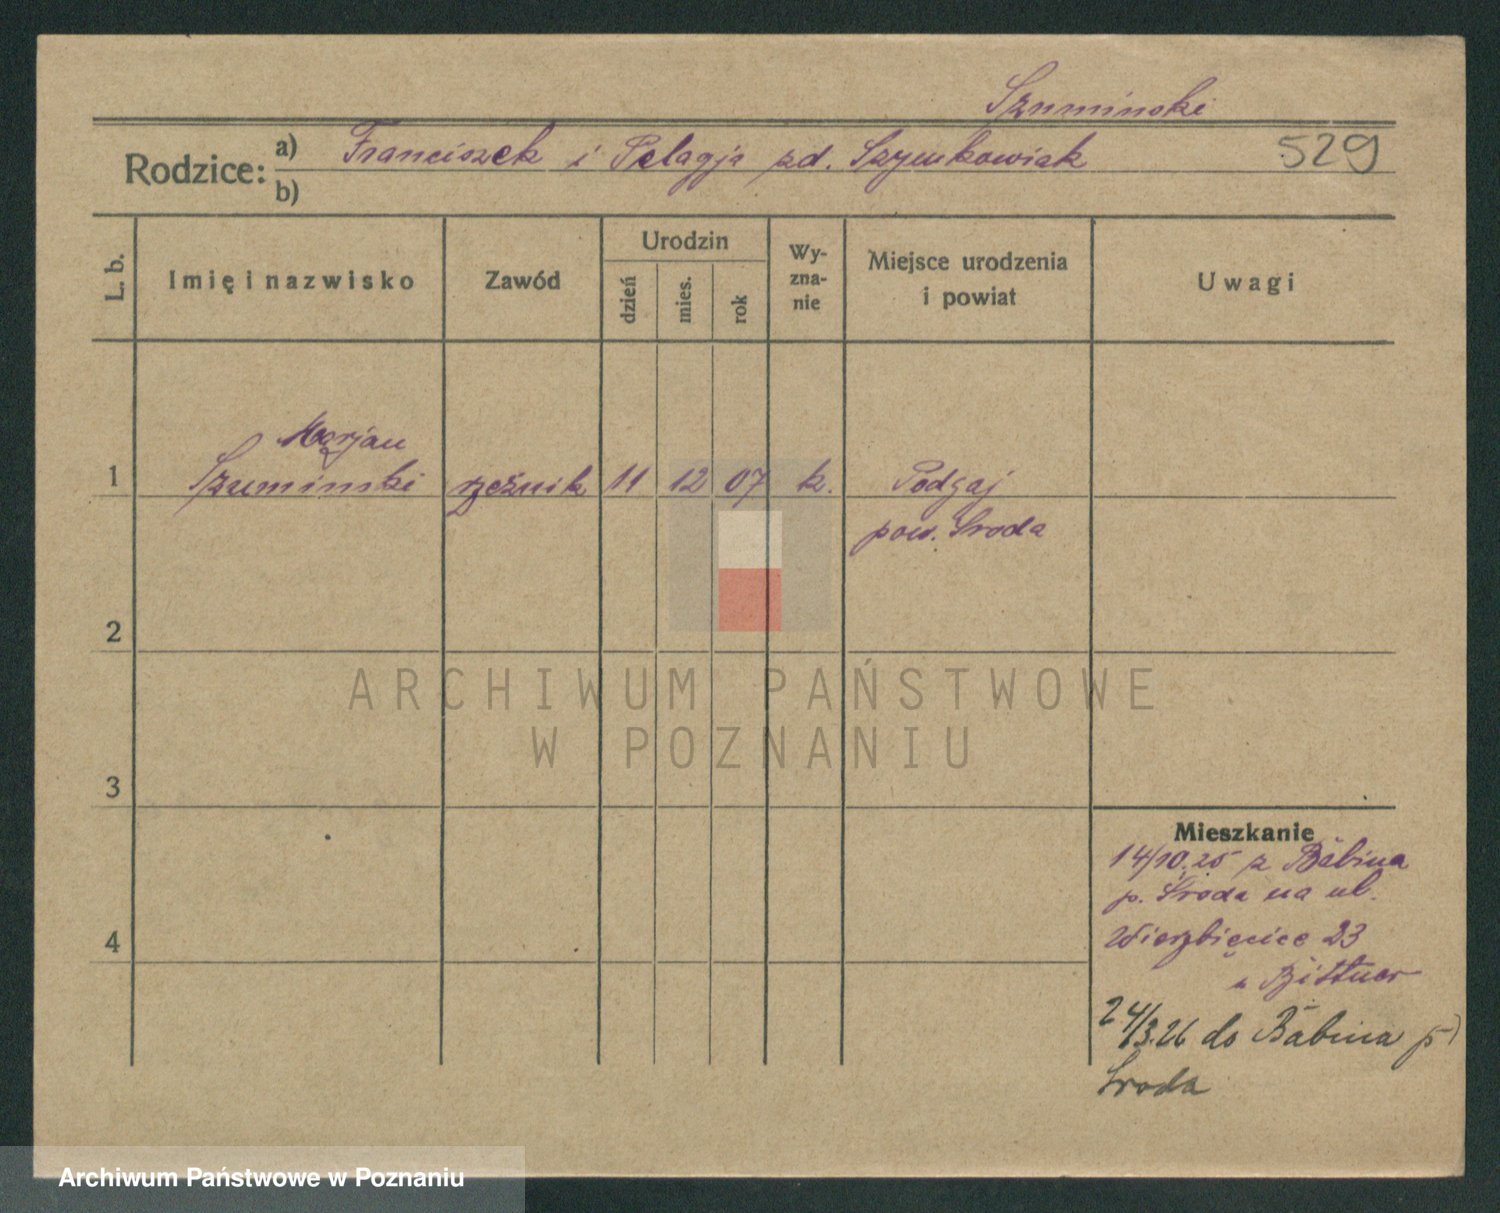 Szuminski
Rodzice: a) Franciszek i Pelagja zd. Szymkowiak 529
b)
L. b. Imię i nazwisko Zawód Urodzin dzień mies. rok Wy-zna-nie Miejsce urodzenia i powiat Uwagi
Marjan
1 Szuminski rzeźnik 11 12 07 k. Podgaj
pow. Środa
2
ARCHIWUM PAŃSTWOWE
W POZNANIU
3
Mieszkanie
14/10.25 z Bābina
p. Środa na ul.
4 Wierzbięcice 23
u Bittner
24/3.26 do Bābina p
Środa
Archiwum Państwowe w Poznaniu